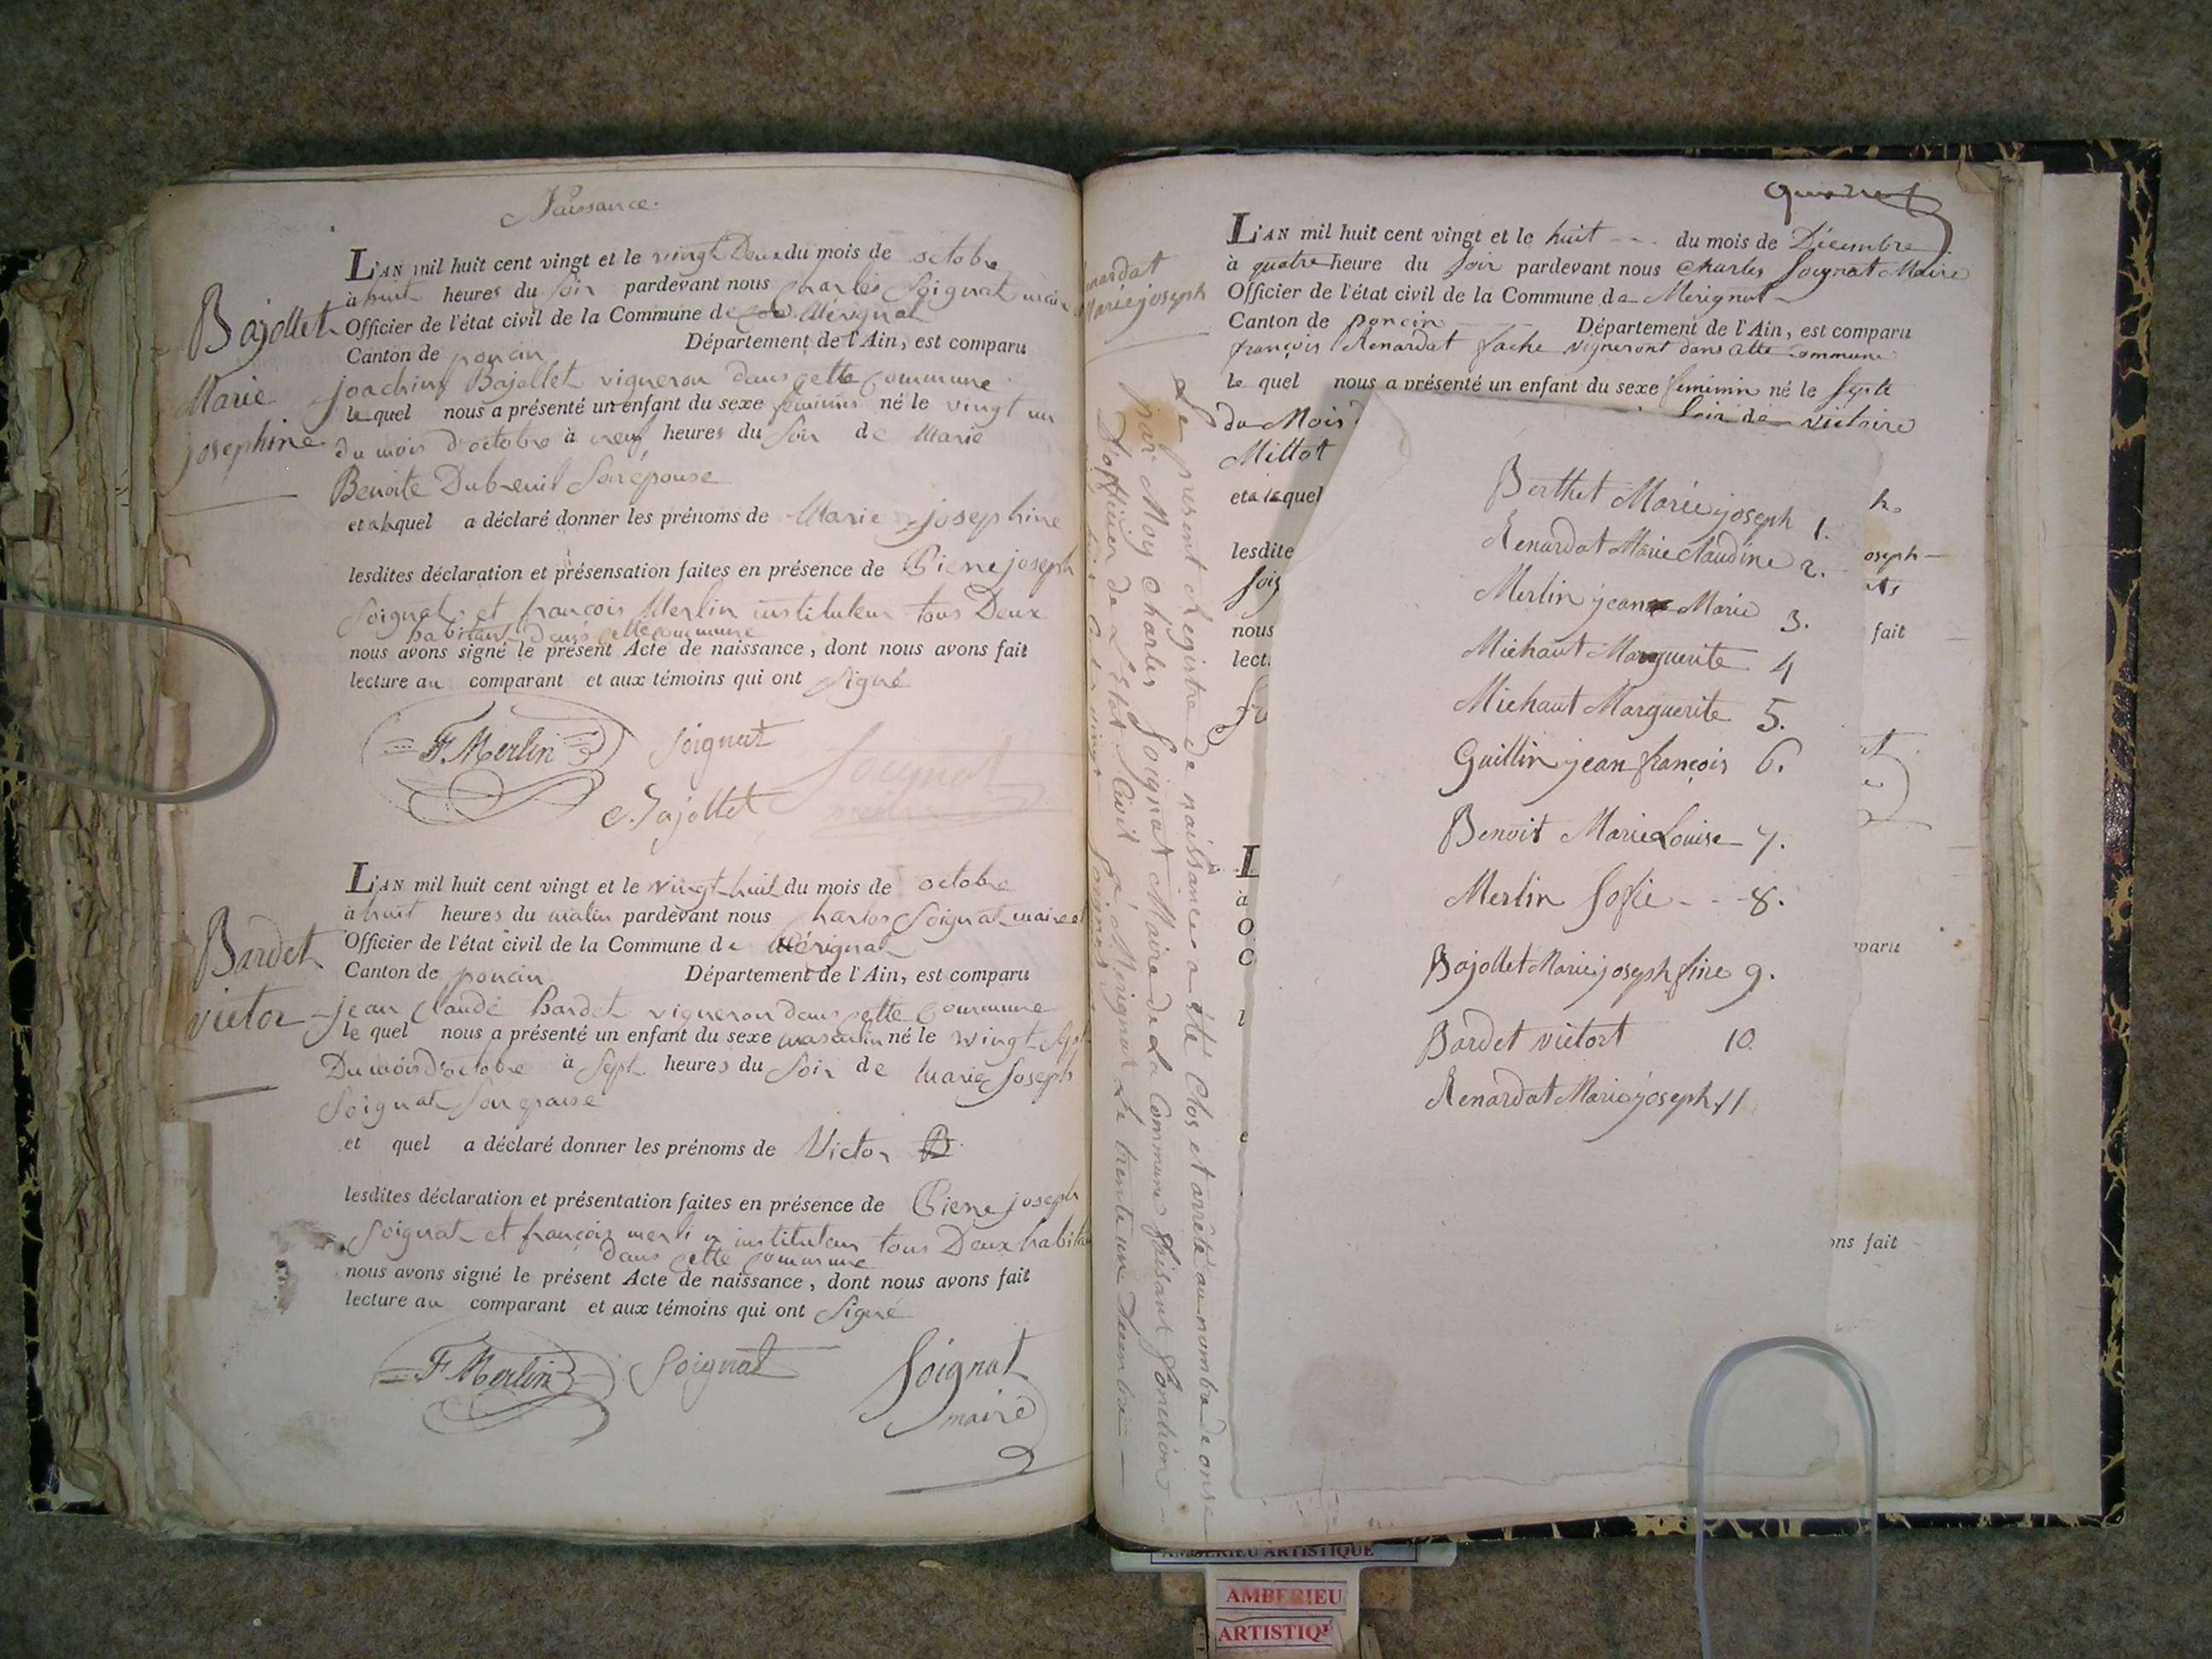 Naissance.
Bajollet
Marie
josephine
L'AN mil huit cent vingt et le vingt Deux du mois de octobre
à huit heures du soir pardevant nous Charles Soignat maire
Officier de l'état civil de la Commune de Mérignat
Canton de poncin Département de l'Ain, est comparu
joachim Bajollet vigneron dans cette commune
le quel nous a présenté un enfant du sexe feminin né le vingt un
du mois d'octobre à neuf heures du soir de Marie
Benoite Dubreuil son épouse
et a quel a déclaré donner les prénoms de Marie josephine
lesdites déclaration et présensation faites en présence de Pierre joseph
Soignat et françois Merlin instituteur tous Deux
habitant dans cette commune
nous avons signé le présent Acte de naissance, dont nous avons fait
lecture au comparant et aux témoins qui ont Signé
F. Merlin Soignat
Bajollet Soignat
maire
Bardet
victor
L'AN mil huit cent vingt et le vingt huit du mois de octobre
à huit heures du matin pardevant nous Charles Soignat maire et
Officier de l'état civil de la Commune de Mérignat
Canton de poncin Département de l'Ain, est comparu
jean Claude Bardet vigneron dans cette commune
le quel nous a présenté un enfant du sexe masculin né le vingt sept
Du mois d'octobre à Sept heures du Soir de Marie Joseph
Soignat son epouse
et quel a déclaré donner les prénoms de Victor
lesdites déclaration et présentation faites en présence de Pierre joseph
Soignat et françois merlin instituteur tous Deux habitant
dans cette commune
nous avons signé le présent Acte de naissance, dont nous avons fait
lecture au comparant et aux témoins qui ont Signé
F Merlin Soignat Soignat
maire
Marie joseph
Le present Registre de naissances a été Clos et arrêté au nombre de onse
par Moy Charles Soignat Maire de La Commune faisant fonction
D'officier de L'Etat Civil de Merignat Le trente un Decembre
L'AN mil huit cent vingt et le huit du mois de Décembre
à quatre heure du soir pardevant nous Charles Soignat Maire
Officier de l'état civil de la Commune de Merignat
Canton de poncin Département de l'Ain, est comparu
françois Renardat vigneront dans cette Commune
le quel nous a présenté un enfant du sexe feminin né le Septe
du Mois
soir de victoire
Millot
et a le quel
lesdite
oseph
soig
nous
fait
lect
Berthet Marie joseph 1.
Renardat Marie Claudine 2.
Merlin jean Marie 3.
Michaut Marguerite 4
Michaut Marguerite 5.
Guillin jean françois 6.
Benoit Marie Louise 7.
Merlin Sofie 8.
Bajollet Marie joseph fine 9.
Bardet victort 10.
Renardat Marie joseph 11
L
à
O
C
paru
ons fait
AMBERIEU ARTISTIQUE
AMBERIEU
ARTISTIQU